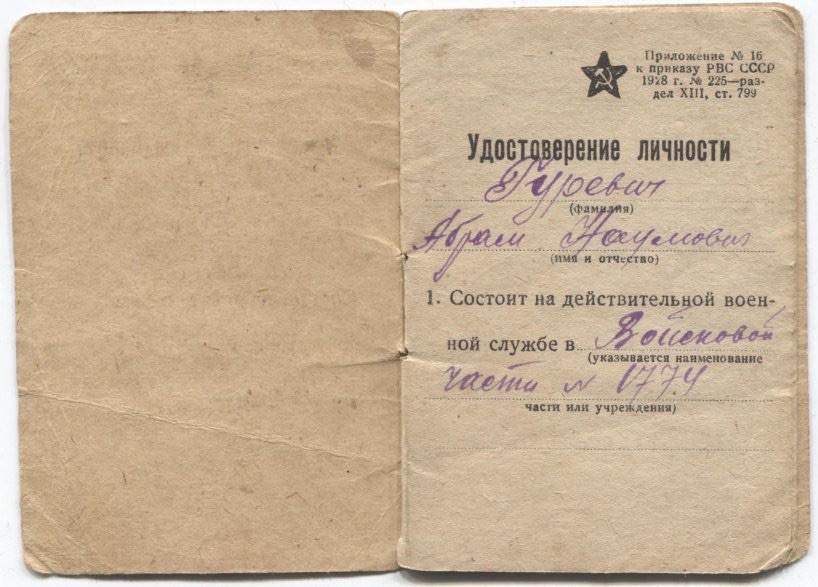 Приложение № 16
к приказу РВС СССР
1928 г. № 225—раз-
дел XIII, ст. 799
Удостоверение личности
Гуревич
(фамилия)
Абрам Наумович
(имя и отчество)
1. Состоит на действительной воен-
ной службе в Войсковой
(указывается наименование
части № 1774
части или учреждения)